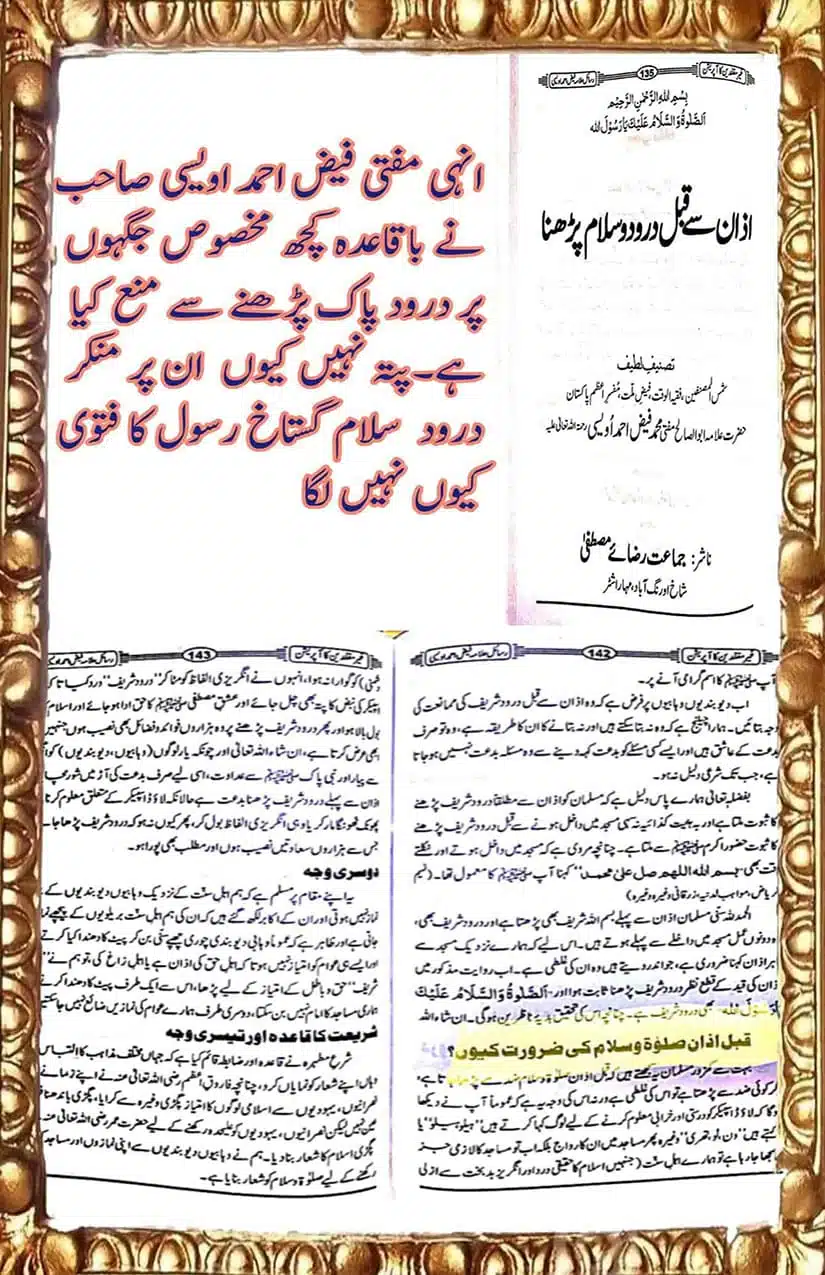 انہی مفتی فیض احمد اویسی صاحب
نے باقاعدہ کچھ مخصوص جگہوں
پر درود پاک پڑھنے سے منع کیا
ہے۔پتہ نہیں کیوں ان پر منکر
درود سلام گستاخ رسول کا فتویٰ
کیوں نہیں لگا
غیر مقلدین کا آپریشن 135 رسائل علامہ فیض احمد اویسی
بسم اللہ الرحمن الرحیم
الصلوۃ والسلام علیک یا رسول اللہ
اذان سے قبل درود و سلام پڑھنا
تصنیف لطیف
شمس المصنفین، فقیہ الوقت، فیض ملت، مفسر اعظم پاکستان
حضرت علامہ ابو الصالح مفتی محمد فیض احمد اُویسی رحمۃ اللہ تعالیٰ علیہ
ناشر: جماعت رضائے مصطفیٰ
شاخ اورنگ آباد، مہاراشٹر
غیر مقلدین کا آپریشن 142 رسائل علامہ فیض احمد اویسی
آپ ﷺ کا اسم گرامی آنے پر۔
اب دیوبندیوں وہابیوں پر فرض ہے کہ وہ اذان سے قبل درود شریف کی ممانعت کی
وجہ بتائیں۔ ہمارا چیلنج ہے کہ وہ نہ بتا سکتے ہیں اور نہ بتانے کا ان کا طریقہ ہے، وہ تو صرف
بدعت کے عاشق ہیں اور ایسے کسی مسئلے کو بدعت کہہ دینے سے وہ مسئلہ بدعت نہیں ہو جاتا
ہے، جب تک شرعی دلیل نہ ہو۔
بفضلہ تعالیٰ ہمارے پاس دلیل ہے کہ مسلمان کو اذان سے مطلقاً درود شریف پڑھنے
کا ثبوت ملتا ہے اور بہ ہیئت کذائیہ نہ سہی مسجد میں داخل ہونے سے قبل درود شریف پڑھنے
کا ثبوت حضور اکرم ﷺ سے ملتا ہے۔ چنانچہ مروی ہے کہ مسجد میں داخل ہوتے اور نکلتے
وقت بھی "بسم اللہ اللهم صل علیٰ محمد" کہنا آپ ﷺ کا معمول تھا۔ (نسیم
الریاض، مواہب لدنیہ، زرقانی وغیرہ وغیرہ)
الحمد للہ سنی مسلمان اذان سے پہلے بسم اللہ شریف بھی پڑھتا ہے اور درود شریف بھی،
یہ دونوں عمل مسجد میں داخلے سے پہلے ہوتے ہیں۔ اس لیے کہ ہمارے نزدیک مسجد سے
باہر اذان کہنا ضروری ہے، جو اندر دیتے ہیں وہ ان کی غلطی ہے۔ اب روایت مذکور میں
اذان کی قید کے قطع نظر درود شریف پڑھنا ثابت ہوا اور "الصلوۃ والسلام علیک
یا رسول اللہ" بھی درود شریف ہے۔ چنانچہ اس کی تحقیق ہدیہ ناظرین ہوگی۔ ان شاء اللہ
قبل اذان صلوٰۃ وسلام کی ضرورت کیوں؟
بہت سے کمزور مسلمان یہ سمجھتے ہیں کہ قبل اذان صلوٰۃ و سلام ضد سے پڑھا جاتا ہے،
اگر کوئی ضد سے پڑھتا ہے تو اس کی غلطی ہے ورنہ اس کی وجہ یہ ہے کہ عموماً آپ نے دیکھا
ہوگا کہ لاؤڈ اسپیکر کو درستی اور خرابی معلوم کرنے کے لیے لوگ کہا کرتے ہیں "ہیلو ہیلو" یا
کہتے ہیں "ون، ٹو، تھری" وغیرہ پھر مساجد میں ان کا رواج بلکہ اب تو مساجد کا لازمی جز
سمجھا جا رہا ہے تو ہمارے اہل سنت (جنہیں اسلام کا حقیقی درد اور انگریز بد بخت سے ازلی
غیر مقلدین کا آپریشن 143 رسائل علامہ فیض احمد اویسی
دشمنی) کو گوارا نہ ہوا، انہوں نے انگریزی الفاظ کو مٹا کر "درود شریف" ورد کیا تا کہ
اسپیکر کی نبض کا پتہ بھی چل جائے اور عشق مصطفیٰ ﷺ کا حق ادا ہو جائے اور اسلام
بول بالا ہو اور پھر درود شریف پڑھنے پر وہ ہزاروں فوائد و فضائل بھی نصیب ہوں جنہیں
ابھی عرض کرتا ہے، ان شاء اللہ تعالیٰ اور چونکہ یار لوگوں (وہابیوں، دیوبندیوں) کو
سے پیار اور نبی پاک ﷺ سے عداوت، اسی لیے صرف بدعت کی آڑ میں شور مچایا
اذان سے پہلے درود شریف پڑھنا بدعت ہے حالانکہ لاؤڈ اسپیکر کے متعلق معلوم کرنا
پھونک ٹھونگا مار کر یا وہی انگریزی الفاظ بول کر، پھر کیوں نہ ہو کہ درود شریف پڑھا جائے
جس سے ہزاروں سعادتیں نصیب ہوں اور مطلب بھی پورا ہو۔
دوسری وجہ
یہ اپنے مقام پر مسلم ہے کہ ہم اہل سنت کے نزدیک وہابیوں دیوبندیوں کے
نماز نہیں ہوتی اور ان کے اکابر لکھ گئے ہیں کہ ان کی ہم اہل سنت بریلویوں کے پیچھے نماز
جاتی ہے اور ظاہر ہے کہ عموماً وہابی دیوبندی چوری چھپے سنی بن کر پیٹ کا دھندا کیا کرتے
اور ایسے ہی عوام کو امتیاز نہیں ہوتا کہ اہل حق کی اذان ہے یا اہل زاغ کی تو ہم نے
شریف" حق و باطل کے امتیاز کے لیے پڑھا، اس سے ایک طرف پیٹ کا دھندا کرنے
ہماری مساجد کا امام نہیں بن سکتا، دوسری طرف ہمارے عوام کی نمازیں ضائع نہیں جا سکتیں
شریعت کا قاعدہ اور تیسری وجہ
شرع مطہرہ نے قاعدہ اور ضابطہ قائم کیا ہے کہ جہاں مختلف مذاہب کا التباس
وہاں اپنے شعار کو نمایاں کرو، چنانچہ فاروق اعظم رضی اللہ تعالیٰ عنہ نے اپنے زمانے
نصرانیوں، یہودیوں سے اسلامی لوگوں کا امتیاز پگڑی وغیرہ سے کرایا، پگڑی باندھنا
نہیں لیکن نصرانیوں، یہودیوں کو علیحدہ رکھنے کے لیے حضرت عمر رضی اللہ تعالیٰ عنہ
پگڑی اسلام کا شعار بنا دیا۔ ہم نے وہابیوں دیوبندیوں سے اپنی نمازوں اور مساجد
رکھنے کے لیے صلوٰۃ و سلام کو شعار بنایا ہے۔